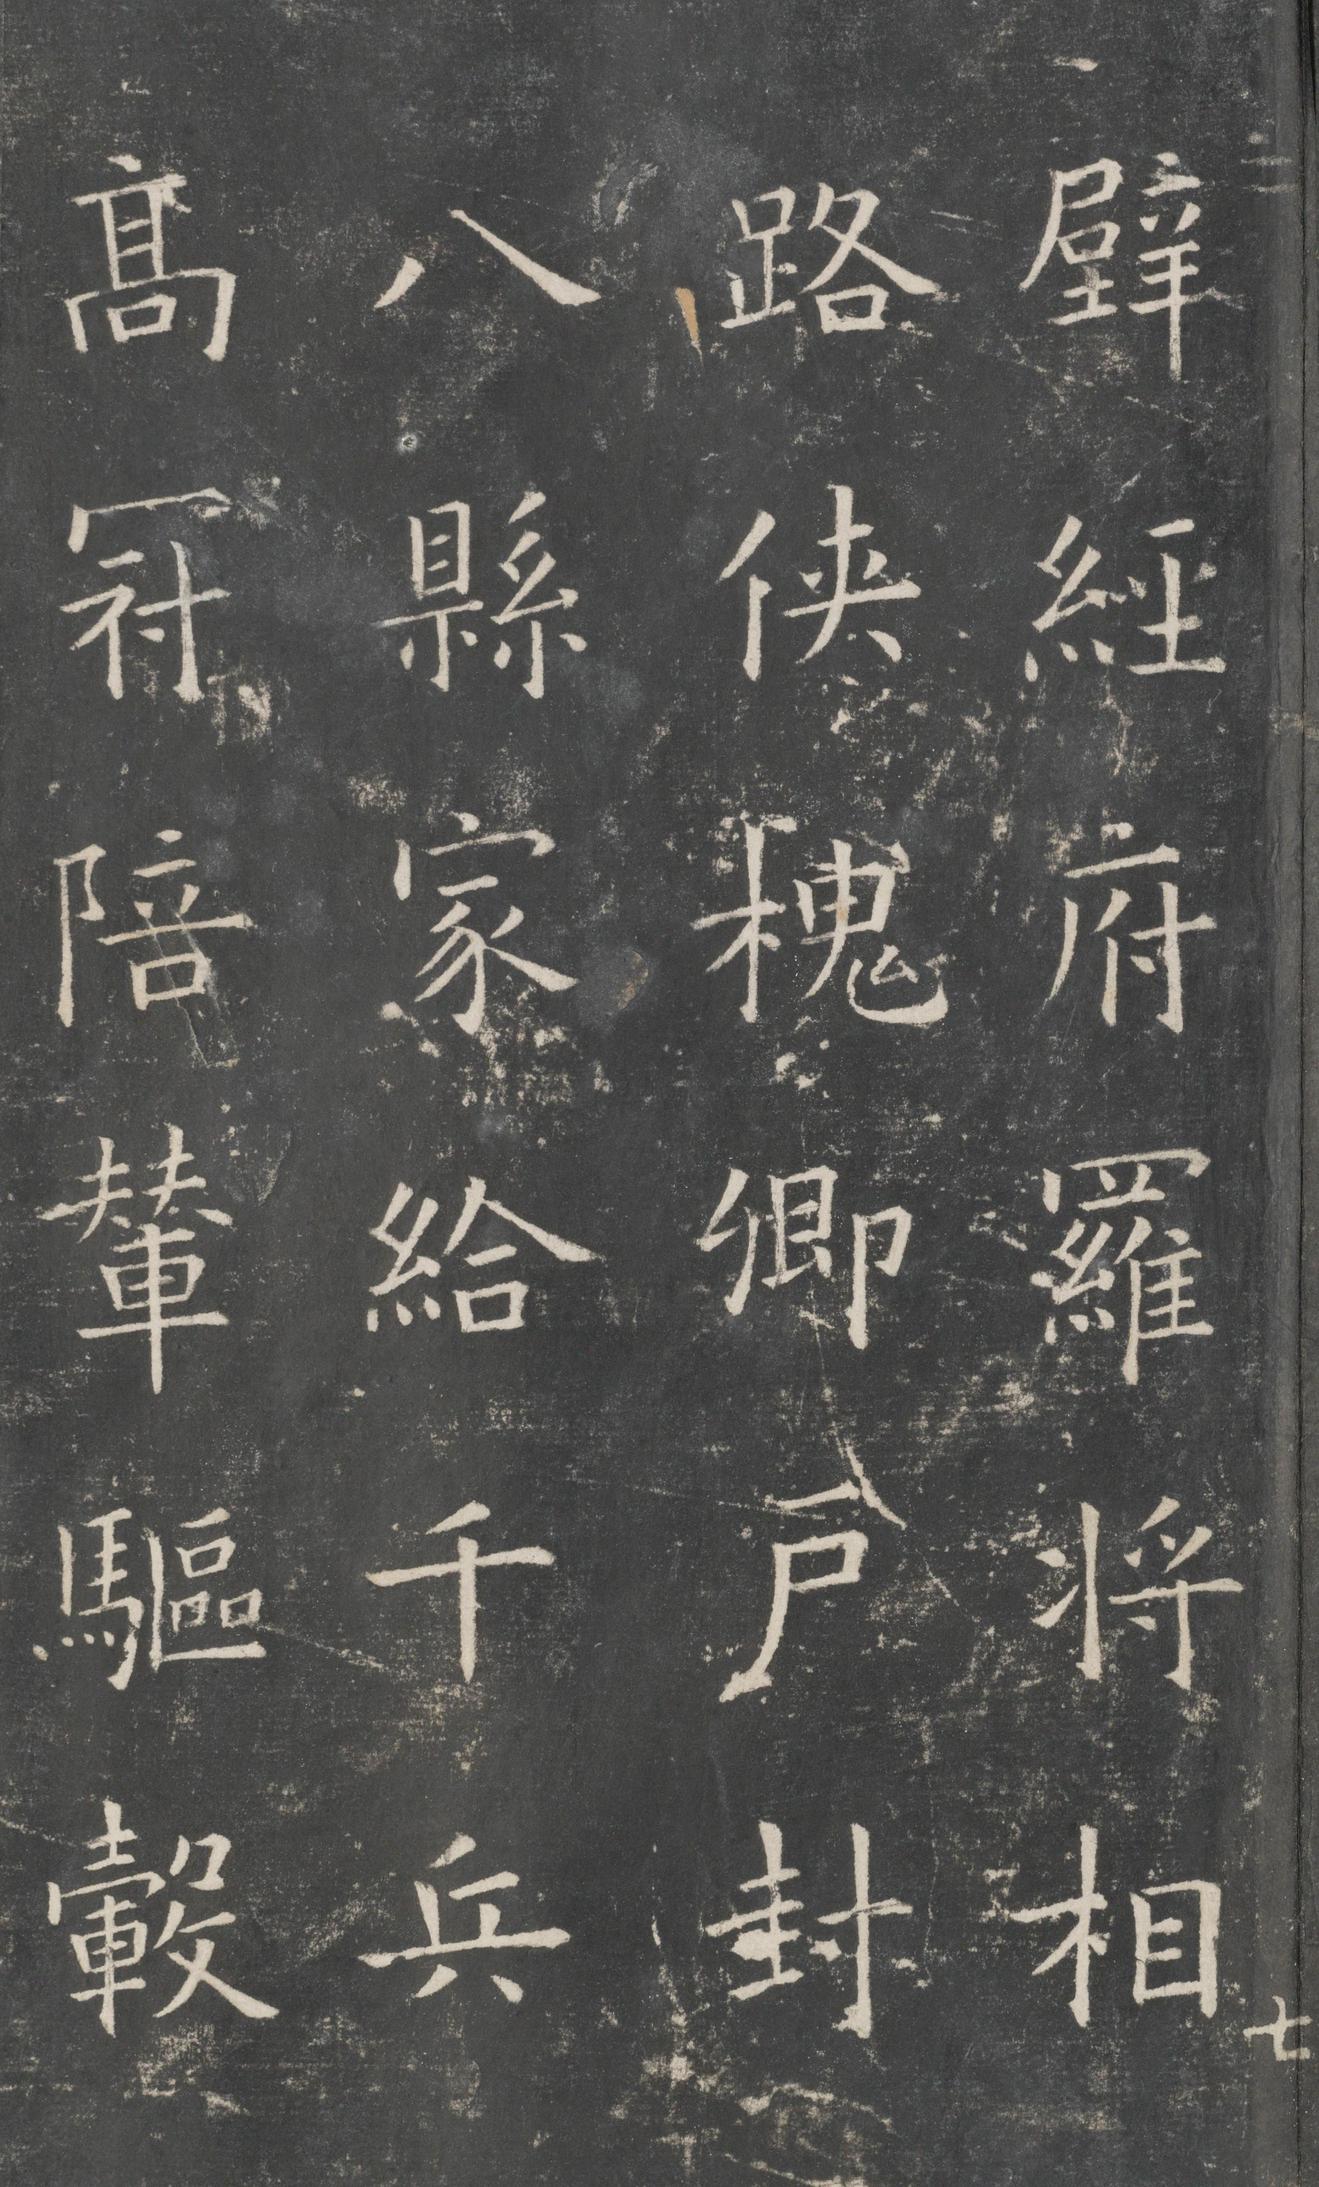 壁經府羅将相
路俠槐卿戶封
八縣家給千兵
髙冠陪輦驅轂
七